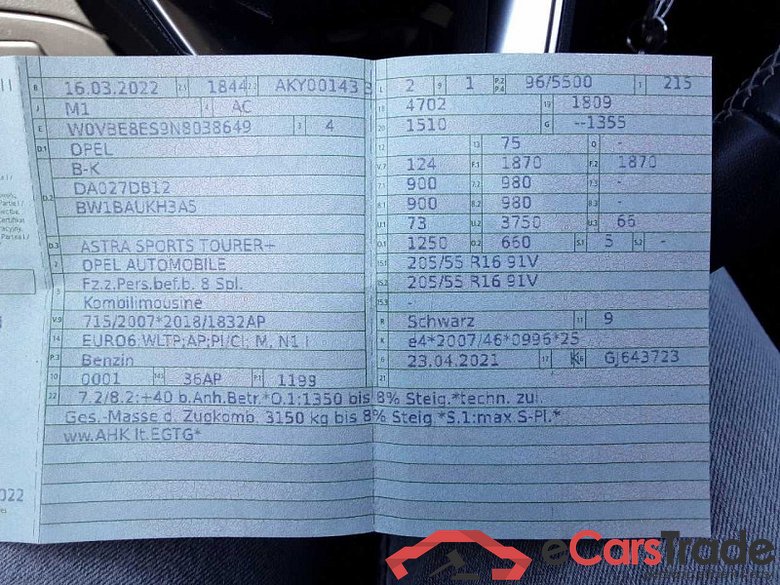 B 16.03.2022 2.1 1844 2.2 AKY00143 3
J M1 4 AC
E W0VBE8ES9N8038649 3 4
D.1 OPEL
B-K
D.2 DA027DB12
BW1BAUKH3A5
D.3 ASTRA SPORTS TOURER+
2 OPEL AUTOMOBILE
5 Fz.z.Pers.bef.b. 8 Spl.
Kombilimousine
V.9 715/2007*2018/1832AP
14 EURO6;WLTP;AP;PI/CI; M, N1 I
P.3 Benzin
10 0001 14.1 36AP P.1 1199
L 2 9 1 P.2 P.4 96/5500 T 215
18 4702 19 1809
20 1510 G --1355
12 - 13 75 Q -
V.7 124 F.1 1870 F.2 1870
7.1 900 7.2 980 7.3 -
8.1 900 8.2 980 8.3 -
U.1 73 U.2 3750 U.3 66
O.1 1250 O.2 660 S.1 5 S.2 -
15.1 205/55 R16 91V
15.2 205/55 R16 91V
15.3 -
R Schwarz 11 9
K e4*2007/46*0996*25
6 23.04.2021 17 K 16 GJ643723
21
22 7.2/8.2:+40 b.Anh.Betr.*O.1:1350 bis 8% Steig.*techn. zul.
Ges.-Masse d. Zugkomb. 3150 kg bis 8% Steig.*S.1:max.S-Pl.*
ww.AHK lt.EGTG*
eCarsTrade